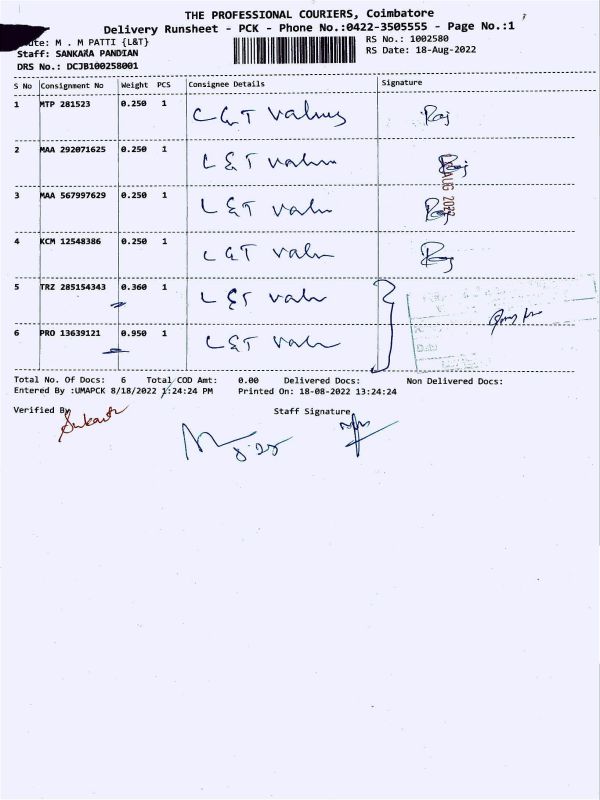 THE PROFESSIONAL COURIERS, Coimbatore
Delivery Runsheet - PCK - Phone No.:0422-3505555 - Page No.:1
M . M PATTI {L&T} RS No.: 1002580
Staff: SANKARA PANDIAN RS Date: 18-Aug-2022
DRS No.: DCJB100258001
S No Consignment No Weight PCS Consignee Details Signature
1 MTP 281523 0.250 1 L&T Valves Raj
2 MAA 292071625 0.250 1 L&T Raj
AUG 2022
3 MAA 567997629 0.250 1 L&T Raj
4 KCM 12548386 0.250 1 L&T Raj
5 TRZ 285154343 0.360 1 L&T
6 PRO 13639121 0.950 1 L&T
Total No. Of Docs: 6 Total COD Amt: 0.00 Delivered Docs: Non Delivered Docs:
Entered By :UMAPCK 8/18/2022 1:24:24 PM Printed On: 18-08-2022 13:24:24
Verified By Staff Signature